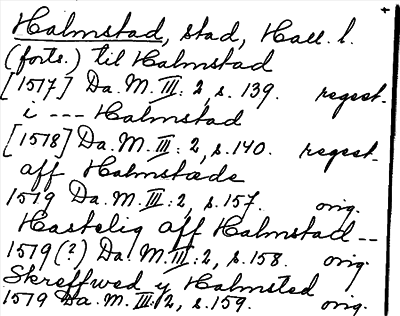 Halmstad, stad, Hall. l.
(forts.) til Halmstad
[1517] Da. M. III: 2, s. 139. regest.
i --- Halmstad
[1518] Da. M. III: 2, s. 140. regest.
aff Halmstæde
1519 Da. M. III: 2, s. 157. orig.
Hastelig aff Halmstad --
1519 (?) Da. M. III: 2, s. 158. orig.
Skreffwed y Halmsted
1519 Da. M. III: 2, s. 159. orig.